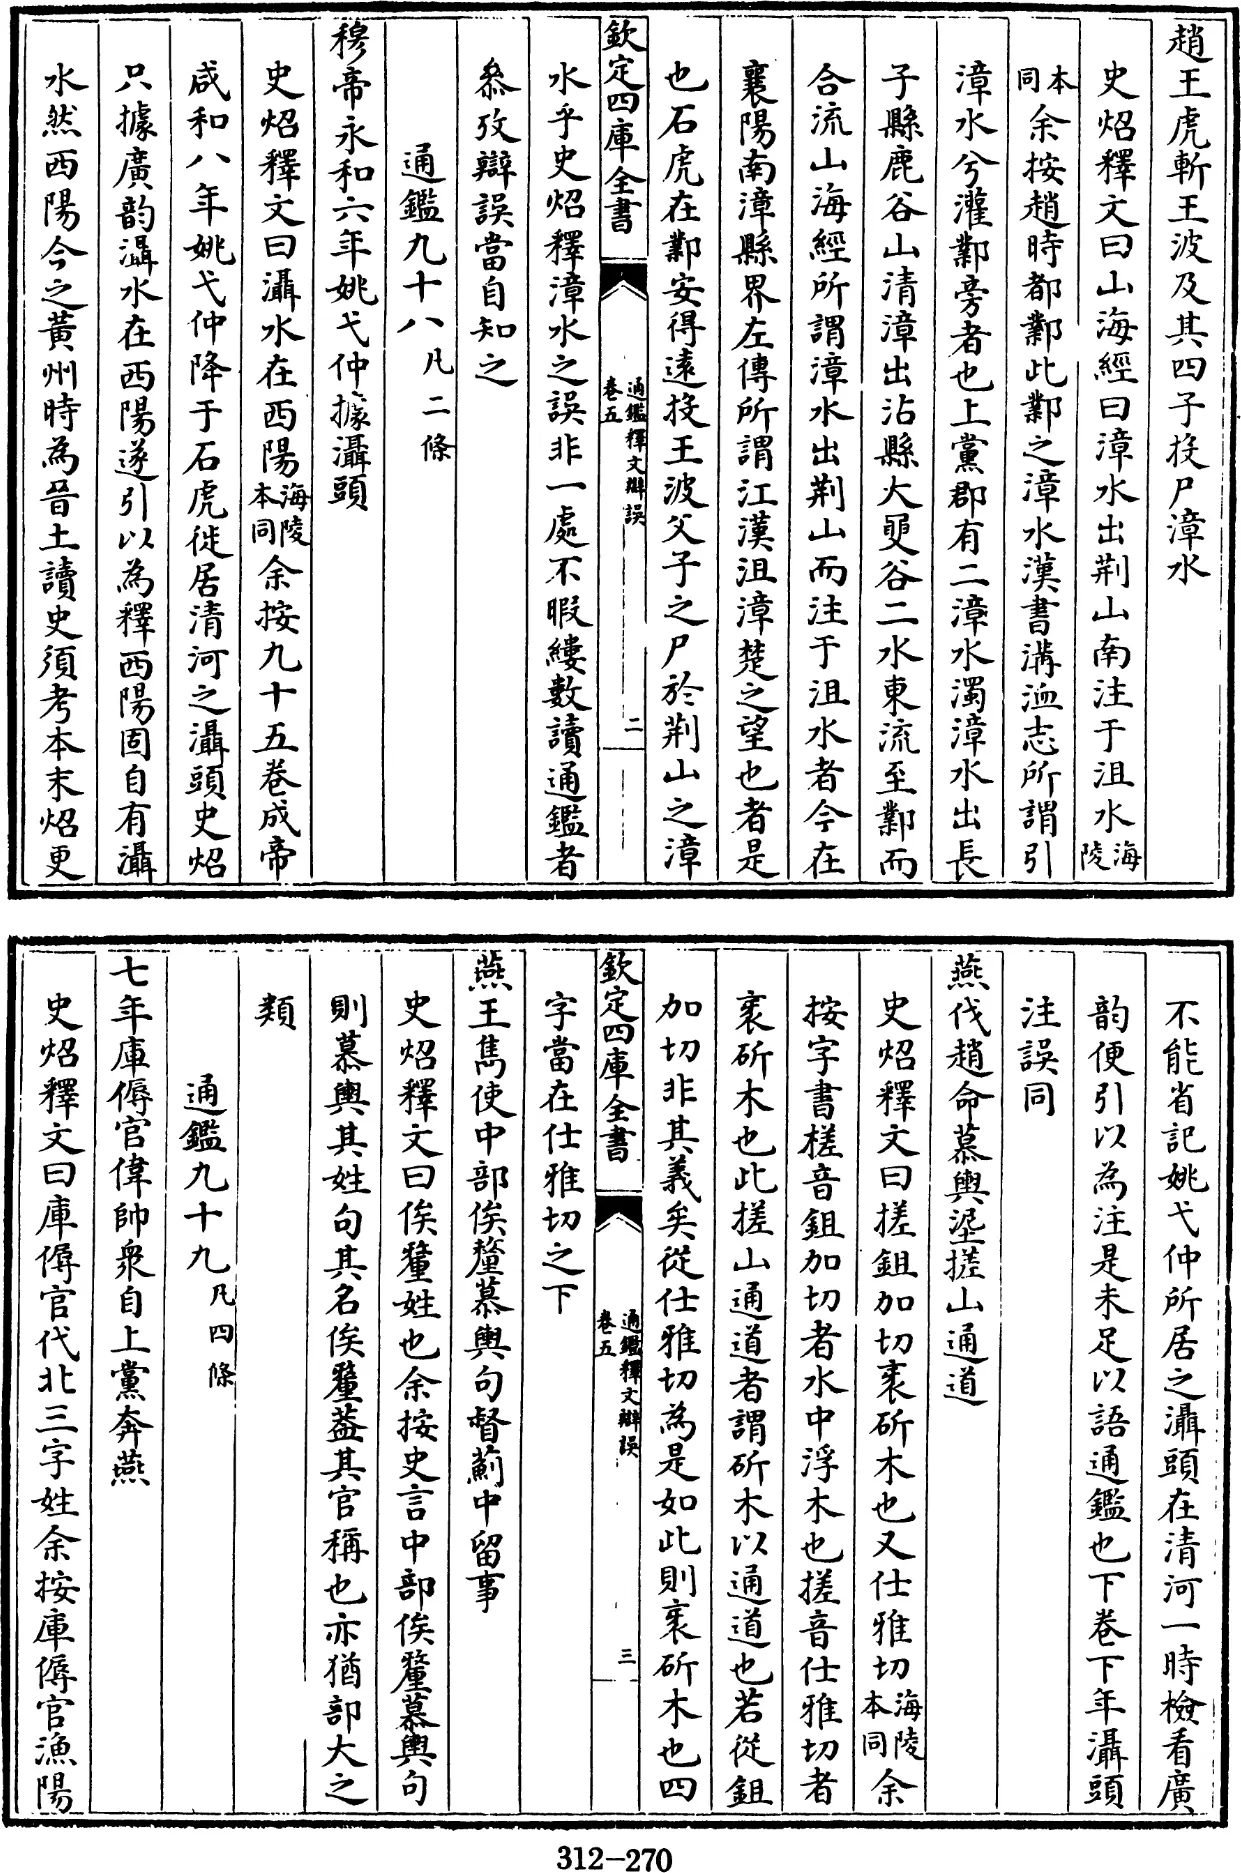 趙王虎斬王波及其四子投尸漳水
史炤釋文曰山海經曰漳水出荆山南注于沮水海陵
本同余按趙時都鄴此鄴之漳水漢書溝洫志所謂引
漳水兮灌鄴旁者也上黨郡有二漳水濁漳水出長
子縣鹿谷山清漳出沾縣大㕠谷二水東流至鄴而
合流山海經所謂漳水出荆山而注于沮水者今在
襄陽南漳縣界左傳所謂江漢沮漳楚之望也者是
也石虎在鄴安得遠投王波父子之尸於荆山之漳
欽定四庫全書
通鑑釋文辯誤
卷五
二
水乎史炤釋漳水之誤非一處不暇縷數讀通鑑者
叅攷辯誤當自知之
通鑑九十八凡二條
穆帝永和六年姚弋仲據灄頭
史炤釋文曰灄水在西陽海陵本同余按九十五卷成帝
咸和八年姚弋仲降于石虎徙居清河之灄頭史炤
只據廣韵灄水在西陽遂引以為釋西陽固自有灄
水然西陽今之黄州時為晉土讀史須考本末炤更
不能省記姚弋仲所居之灄頭在清河一時檢看廣
韵便引以為注是未足以語通鑑也下卷下年灄頭
注誤同
燕伐趙命慕輿埿搓山通道
史炤釋文曰搓鉏加切衺斫木也又仕雅切海陵本同余
按字書槎音鉏加切者水中浮木也搓音仕雅切者
衺斫木也此搓山通道者謂斫木以通道也若從鉏
加切非其義矣從仕雅切為是如此則衺斫木也四
欽定四庫全書
通鑑釋文辯誤
卷五
三
字當在仕雅切之下
燕王雋使中部俟釐慕輿句督薊中留事
史炤釋文曰俟釐姓也余按史言中部俟釐慕輿句
則慕輿其姓句其名俟釐葢其官稱也亦猶部大之
類
通鑑九十九凡四條
七年庫傉官偉帥衆自上黨奔燕
史炤釋文曰庫傉官代北三字姓余按庫傉官漁陽
312-270